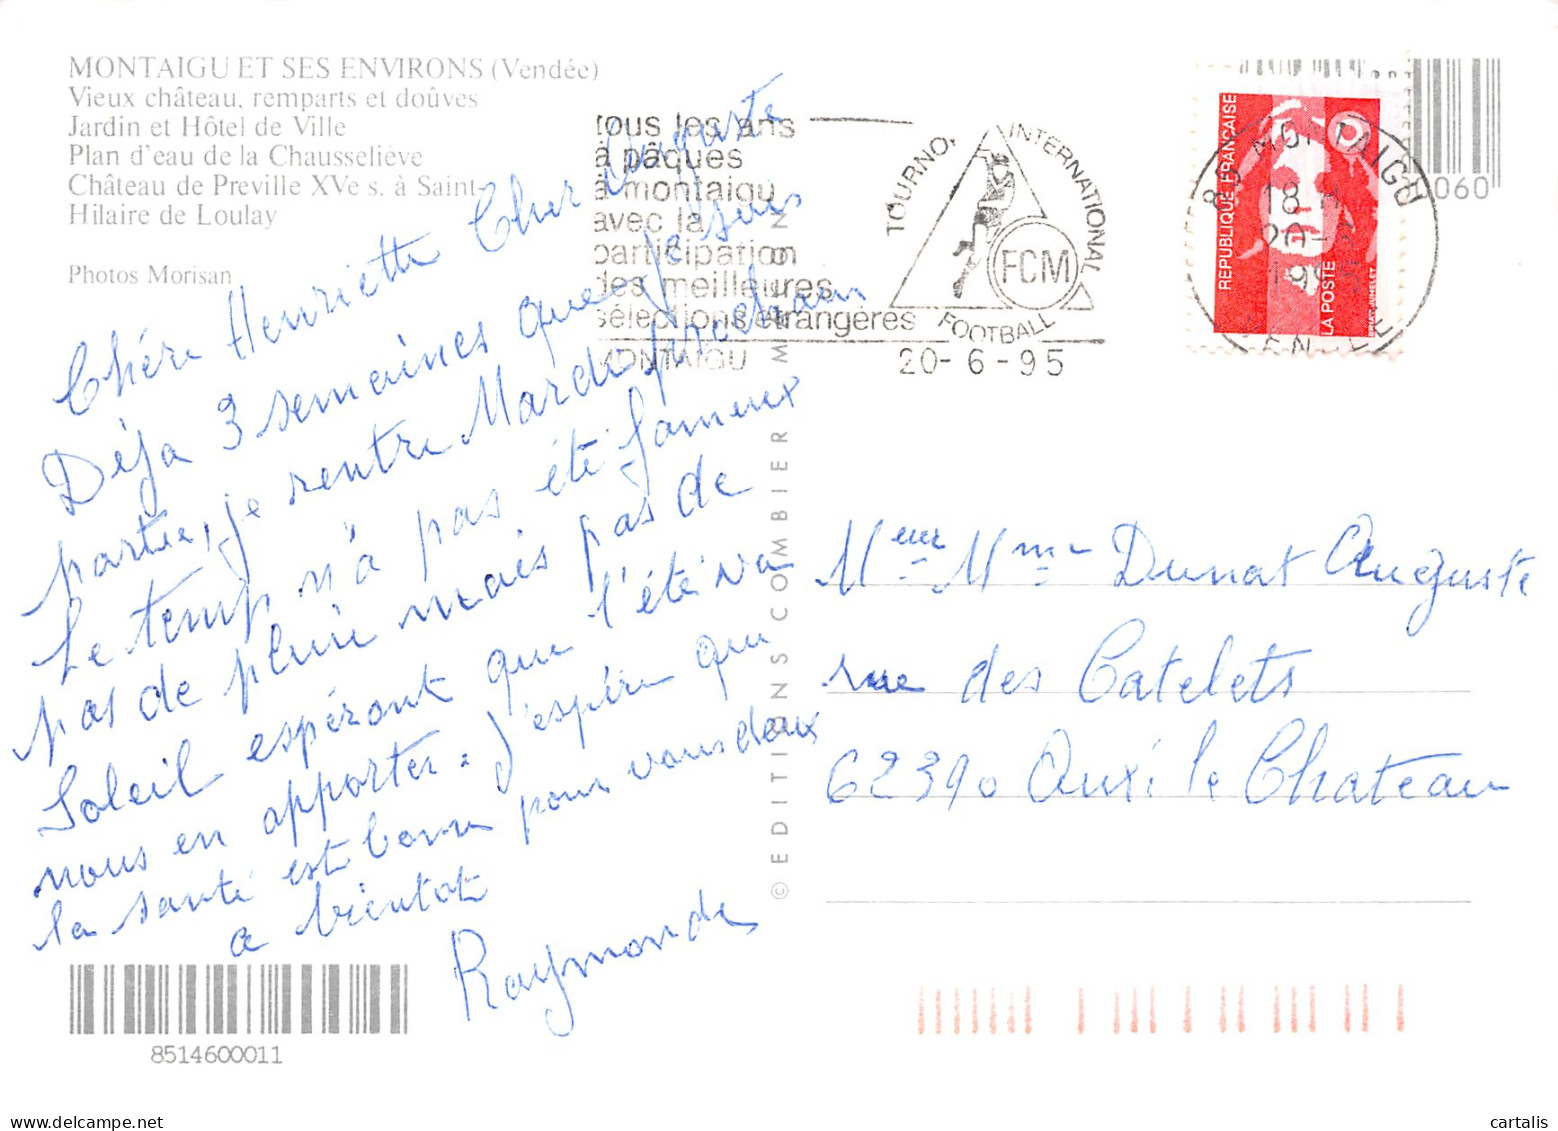 MONTAIGU ET SES ENVIRONS (Vendée)
Vieux château, remparts et doûves
Jardin et Hôtel de Ville
Plan d'eau de la Chausseliève
Château de Preville XVe s. à Saint-
Hilaire de Loulay
Photos Morisan
tous les ans
à pâques
à montaigu
avec la
participation
des meilleures
sélections étrangères
MONTAIGU
TOURNOI INTERNATIONAL
FCM
FOOTBALL
20-6-95
REPUBLIQUE FRANÇAISE
LA POSTE
85 MONTAIGU
18 H
20-6
1995
VENDEE
060
Chère Henriette Cher Auguste
Déja 3 semaines que je suis
partie, je rentre Mardi prochain
Le temps n'a pas été fameux
pas de pluie mais pas de
Soleil espéront que l'été va
nous en apporter. J'espère que
la santé est bonne pour vous deux
a bientot
Raymonde
© EDITIONS COMBIER MACON
Meur Mme Dunat Auguste
rue des Catelets
62390 Auxi le Chateau
8514600011
cartalis